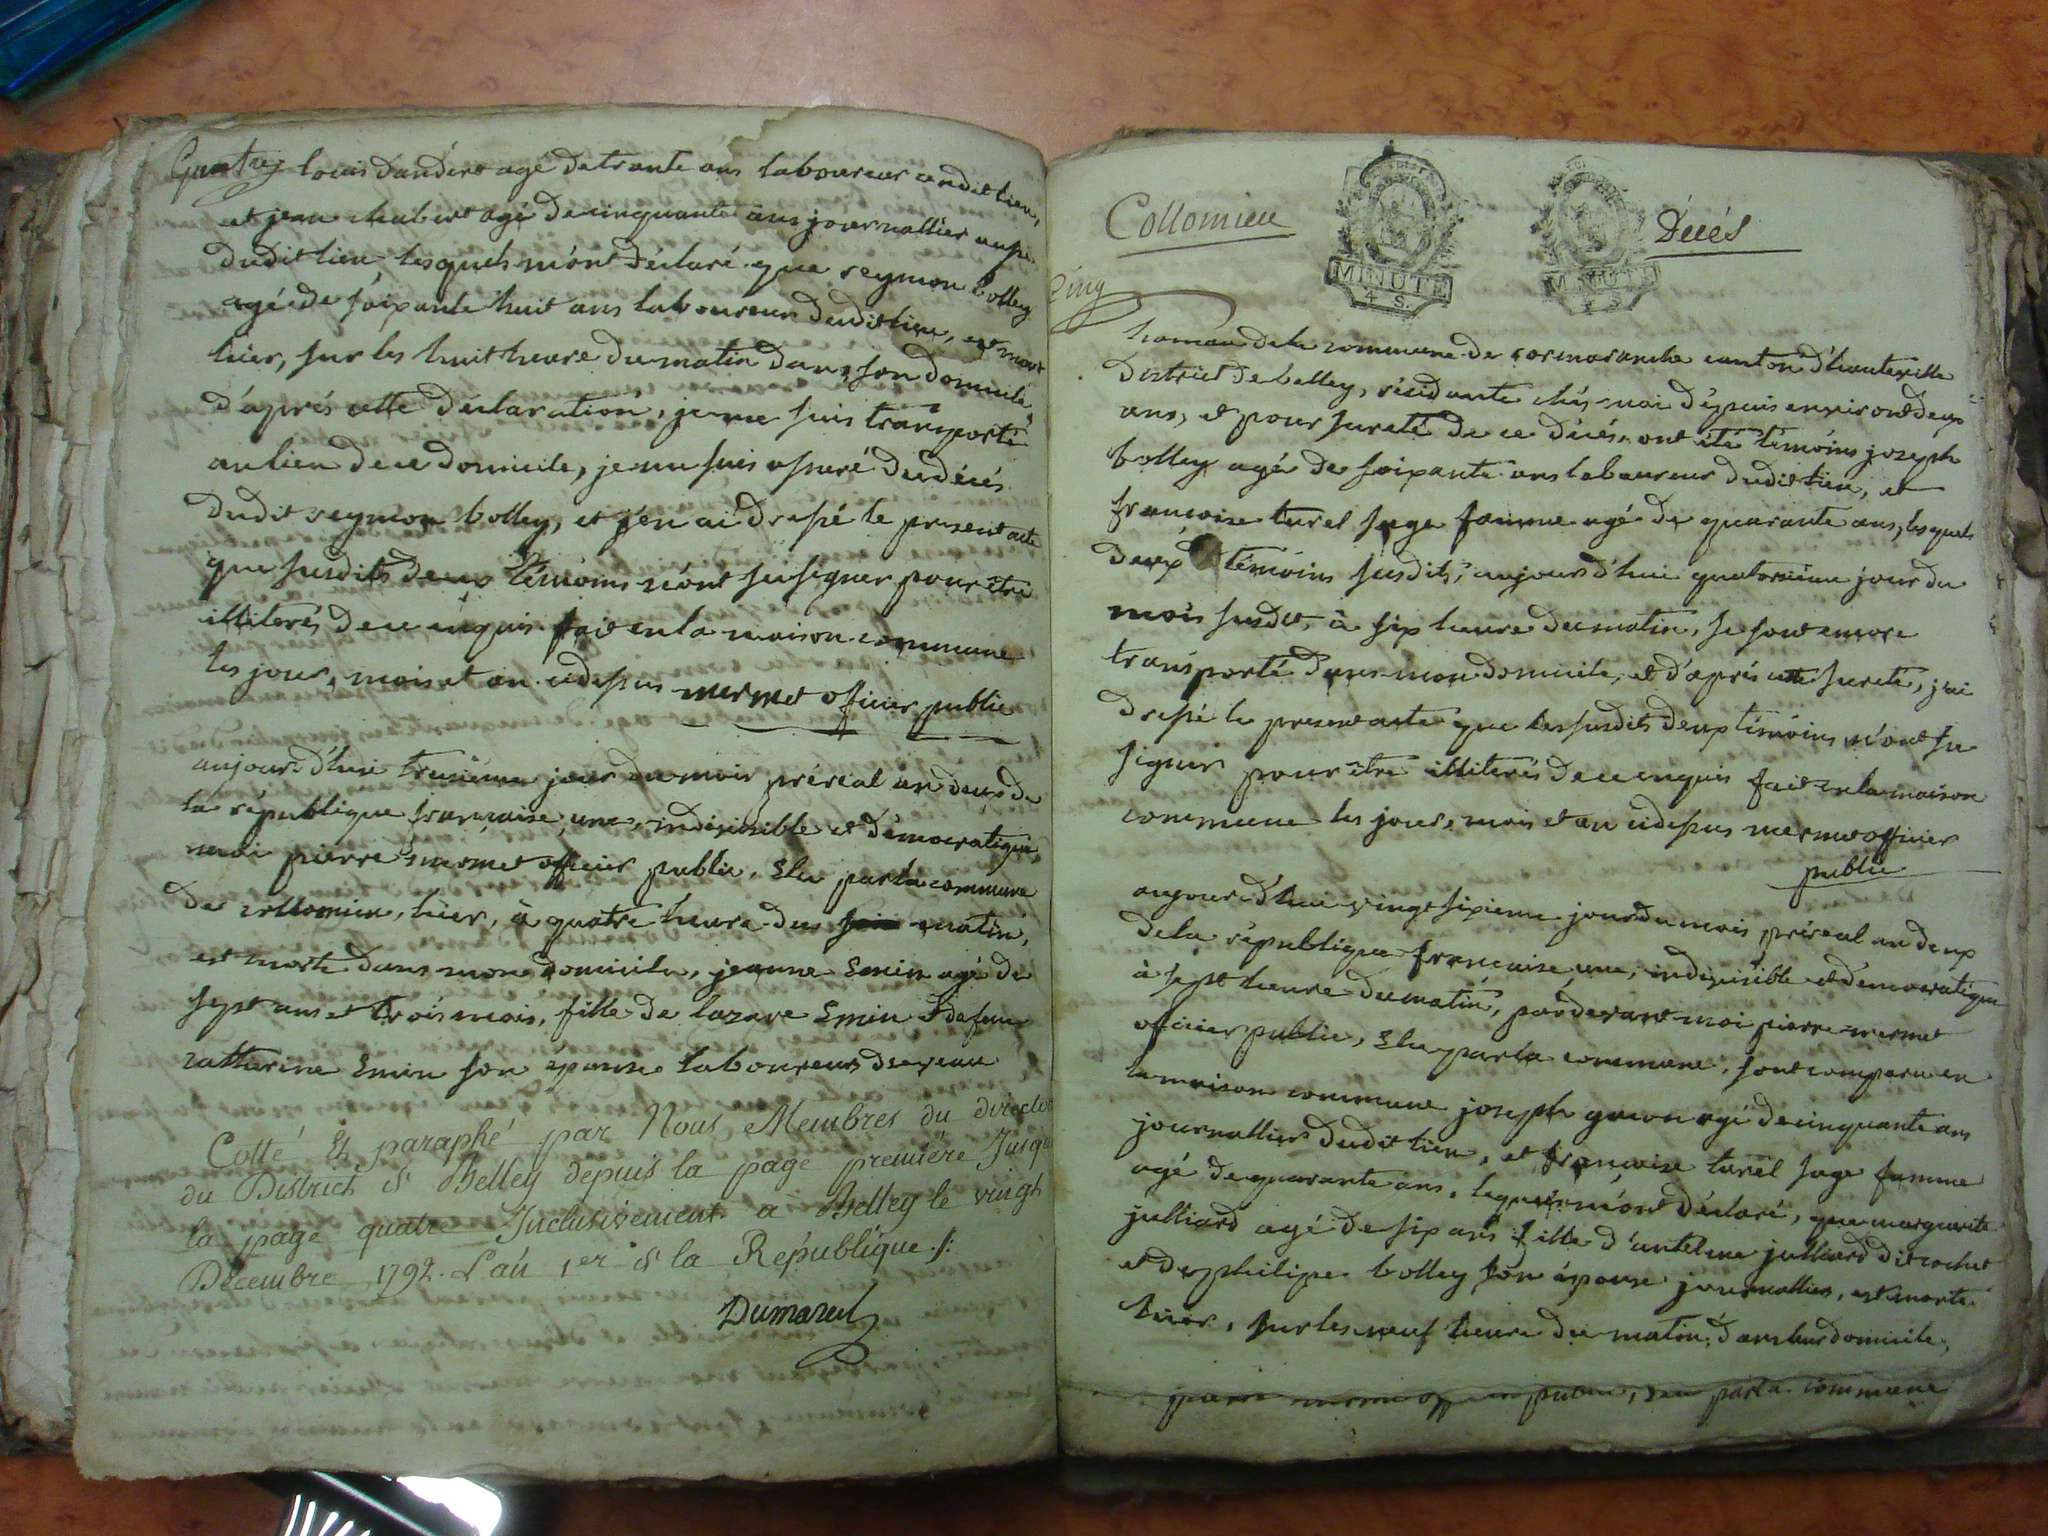 Quatre
louis dandert agé de trante ans laboureur audit lieu,
et jean chabert agé de cinquante ans journallier aussi
dudit lieu, lesquels m'ont déclaré que reymon bolley
agé de soixante huit ans laboureur dudit lieu, est mort
hier, sur les huit heure du matin dans son domicile,
d'aprés cette déclaration, je me suis transporté
au lieu de ce domicile, je me suis assuré du décés
dudit reymon bolley, et j'en ai dressé le present acte
que susdits deux témoins n'ont su signer pour être
illiterés de ce enquis fait en la maison commune
les jour, mois et an cidessus mermet officier public
aujourd'hui trusiéme jour du mois préreal an deux de
la république française une, indivisible et démocratique,
moi pierre mermet officier public, élu par la commune
de collomieu, hier, à quatre heure du soir matin,
est morte dans mon domicile, jeanne Emin agé de
sept ans et trois mois, fille de lazare Emin et de feue
catterine Emin son épouse laboureurs
Cotté Et paraphé par Nous Membres du director
du District de Belley depuis la page première Jusqu
la page quatre Inclusivement a Belley le vingt
Decembre 1792. L'an 1er de la République ./.
Dumarest
Collomieu
MINUTE
4 S.
MINUTE
4 S
Décés
Cinq
hamau de la commune de cormaranche canton d'hauteville
district de belley, résidante chés moi dépuis environt deux
ans, et pour sureté de ce décés, ont été témoins joseph
bolley agé de soixante ans laboureur dudit lieu, et
francoise turel sage famme agé de quarante ans, lesquels
deux témoins susdits, aujourd'hui quatorsiéme jour du
mois susdit, à six heure du matin, se sont encore
transporté dans mon domicile, et d'aprés cette sureté, j'ai
dressé le present acte que les susdits deux témoins n'ont su
signer pour être illiterés de ce enquis fait en la maison
commune les jour, mois et an cidessus mermet officier
public
aujourd'hui vingt sixieme jour du mois préreal an deux
de la république francaise, une, indivisible et démocratique
à sept heure du matin, pardevant moi pierre mermet
officier public, élu par la commune, sont comparu en
la maison commune joseph guion agé de cinquante ans
journallier dudit lieu, et francoise turel sage famme
agé de quarante ans, lequels m'ont déclaré, que marguerite
julliard agé de six ans fille d'antelme julliard dit rochet
et de philipe bolley son épouse journallier, est morte
hier, sur les neuf heure du matin, dans leur domicile,
public, élu par la commune